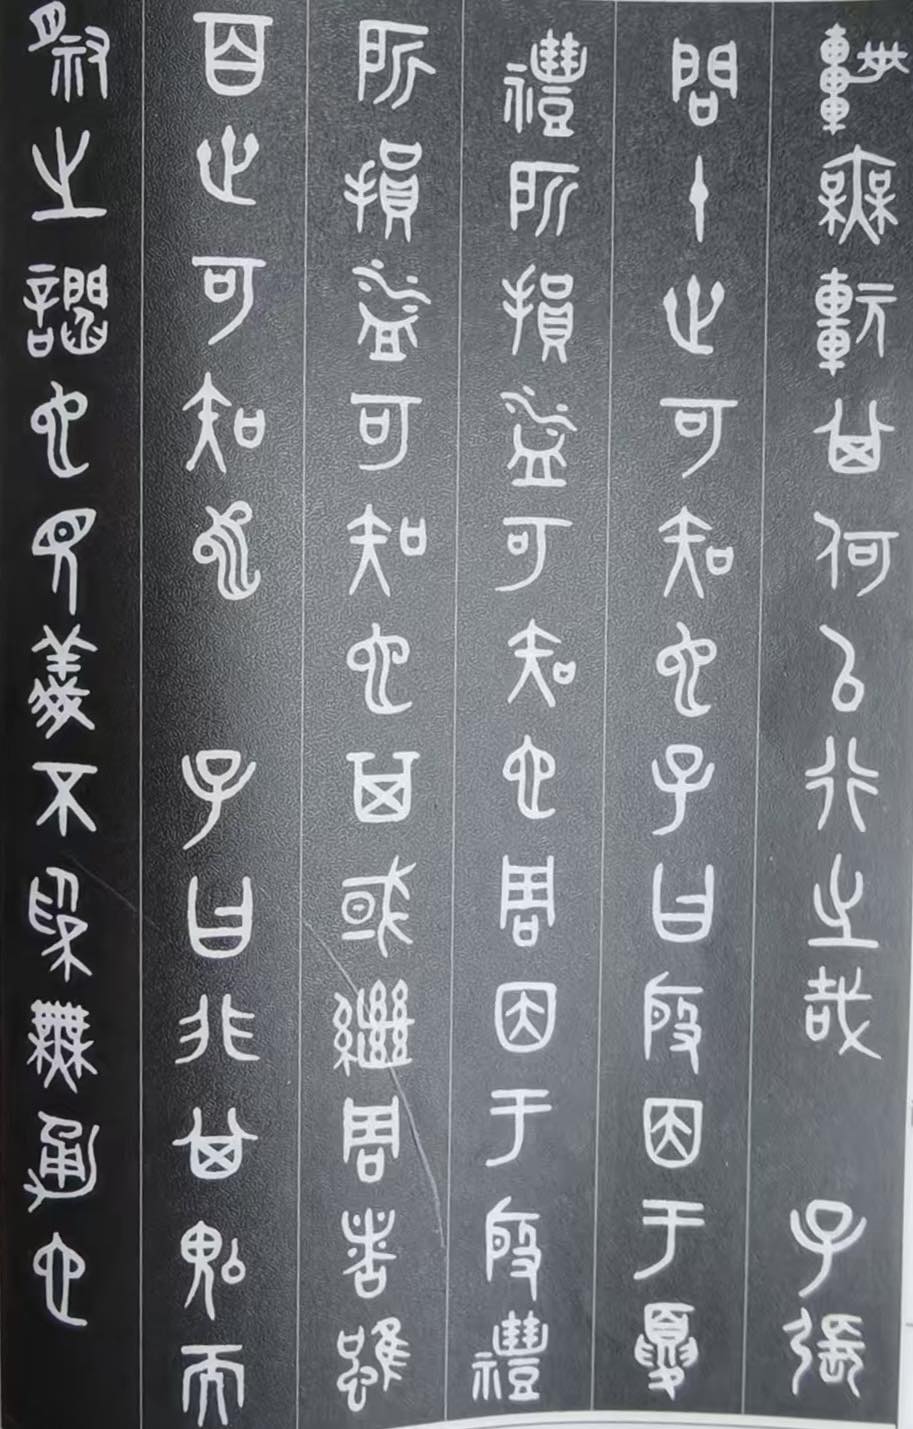 車無軏其何以行之哉 子張
問十世可知也子曰殷因于夏
禮所損益可知也周因于殷禮
所損益可知也其或繼周者雖
百世可知也 子曰非其鬼而
祭之諂也見義不為無勇也